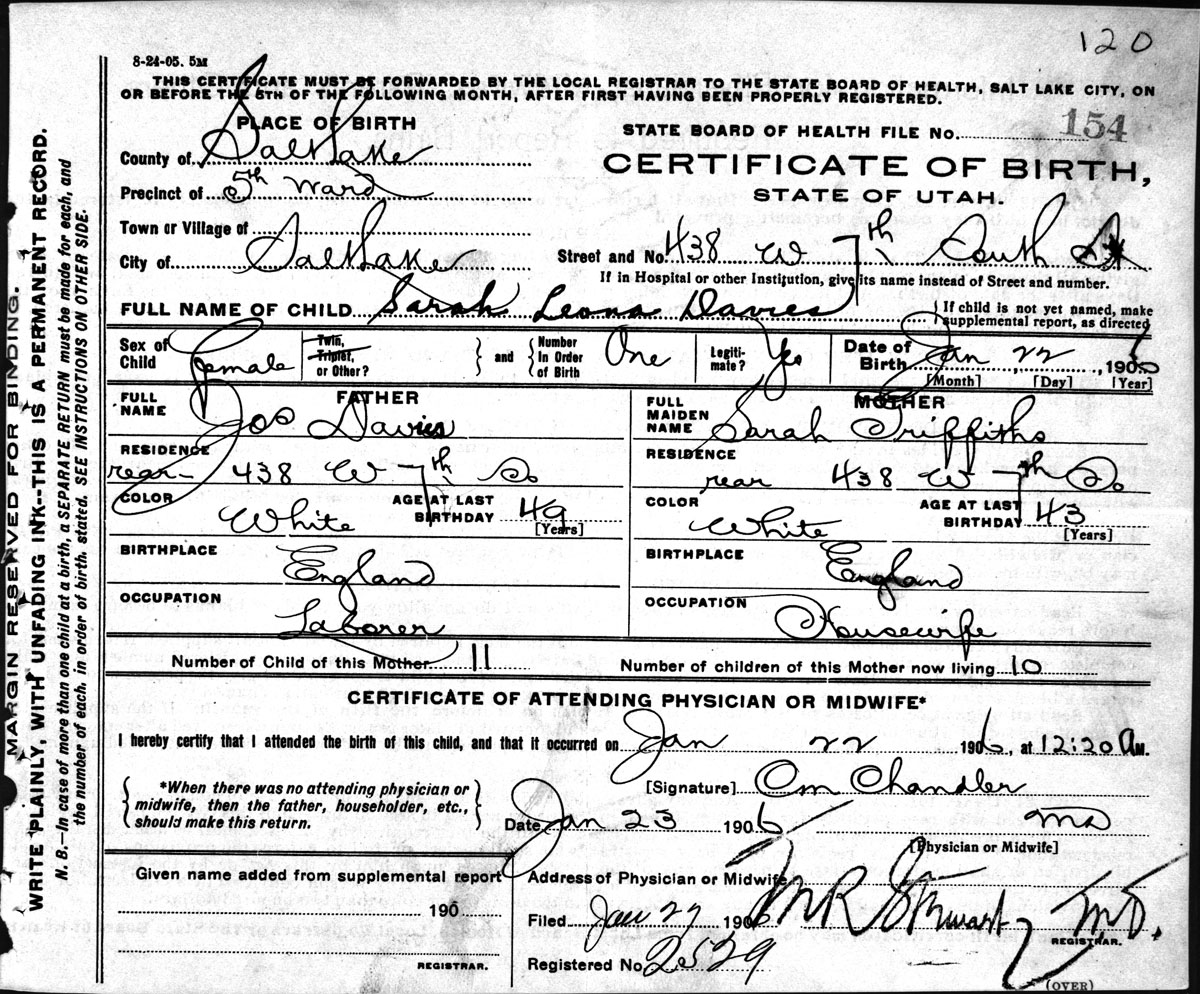 120
8-24-05. 5M
THIS CERTIFICATE MUST BE FORWARDED BY THE LOCAL REGISTRAR TO THE STATE BOARD OF HEALTH, SALT LAKE CITY, ON
OR BEFORE THE 5TH OF THE FOLLOWING MONTH, AFTER FIRST HAVING BEEN PROPERLY REGISTERED.
MARGIN RESERVED FOR BINDING.
WRITE PLAINLY, WITH UNFADING INK--THIS IS A PERMANENT RECORD.
N. B.—In case of more than one child at a birth, a SEPARATE RETURN must be made for each, and
the number of each, in order of birth, stated. SEE INSTRUCTIONS ON OTHER SIDE.
PLACE OF BIRTH
STATE BOARD OF HEALTH FILE No. 154
County of Salt Lake
CERTIFICATE OF BIRTH,
Precinct of 5th Ward
STATE OF UTAH.
Town or Village of
City of Salt Lake Street and No. 438 W 7th South St
If in Hospital or other Institution, give its name instead of Street and number.
FULL NAME OF CHILD Sarah Leona Davies If child is not yet named, make supplemental report, as directed
Sex of Child Female Twin, Triplet, or Other? and Number In Order of Birth One Legiti-mate? Yes Date of Birth Jan 22, 1906
[Month] [Day] [Year]
FATHER MOTHER
FULL NAME Jos Davies FULL MAIDEN NAME Sarah Griffiths
RESIDENCE rear- 438 W 7th So RESIDENCE rear 438 W 7th So
COLOR White AGE AT LAST BIRTHDAY 49 [Years] COLOR White AGE AT LAST BIRTHDAY 43 [Years]
BIRTHPLACE England BIRTHPLACE England
OCCUPATION Laborer OCCUPATION Housewife
Number of Child of this Mother 11 Number of children of this Mother now living 10
CERTIFICATE OF ATTENDING PHYSICIAN OR MIDWIFE*
I hereby certify that I attended the birth of this child, and that it occurred on Jan 22 1906, at 12:20 A M.
*When there was no attending physician or
midwife, then the father, householder, etc.,
should make this return.
[Signature] Om Chandler
Date Jan 23 1906 MD
[Physician or Midwife]
Given name added from supplemental report
190
REGISTRAR.
Address of Physician or Midwife
Filed Jan 27 1906 M R Stewart M.D.
REGISTRAR.
Registered No. 2529
(OVER)